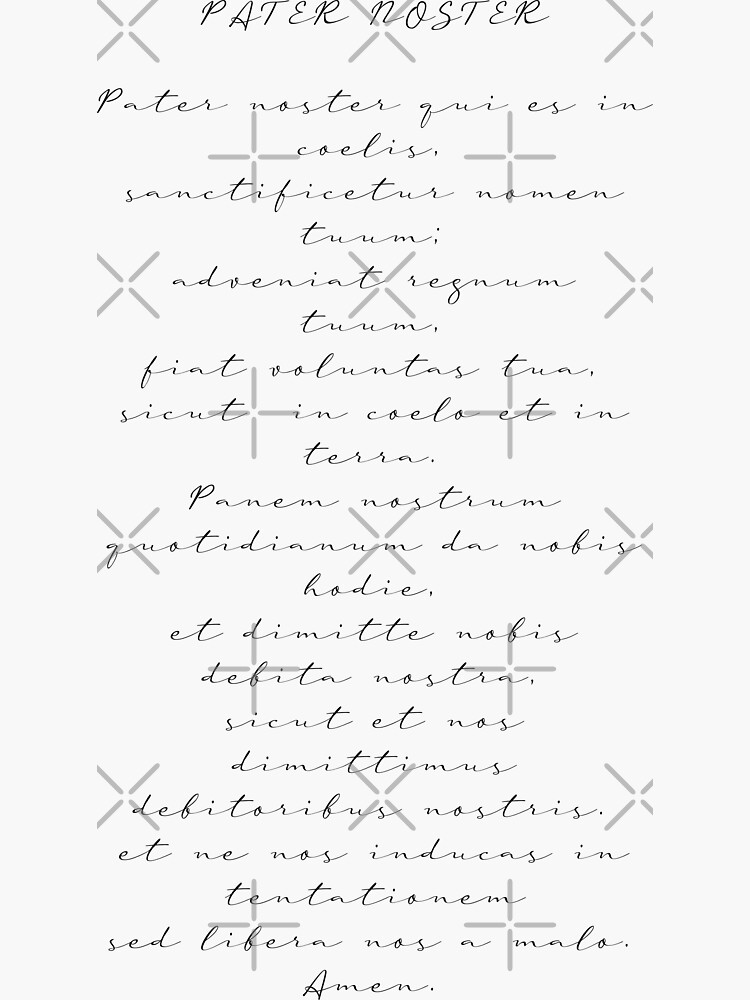 PATER NOSTER
Pater noster qui es in
coelis,
sanctificetur nomen
tuum;
adveniat regnum
tuum,
fiat voluntas tua,
sicut in coelo et in
terra.
Panem nostrum
quotidianum da nobis
hodie,
et dimitte nobis
debita nostra,
sicut et nos
dimittimus
debitoribus nostris.
et ne nos inducas in
tentationem
sed libera nos a malo.
Amen.